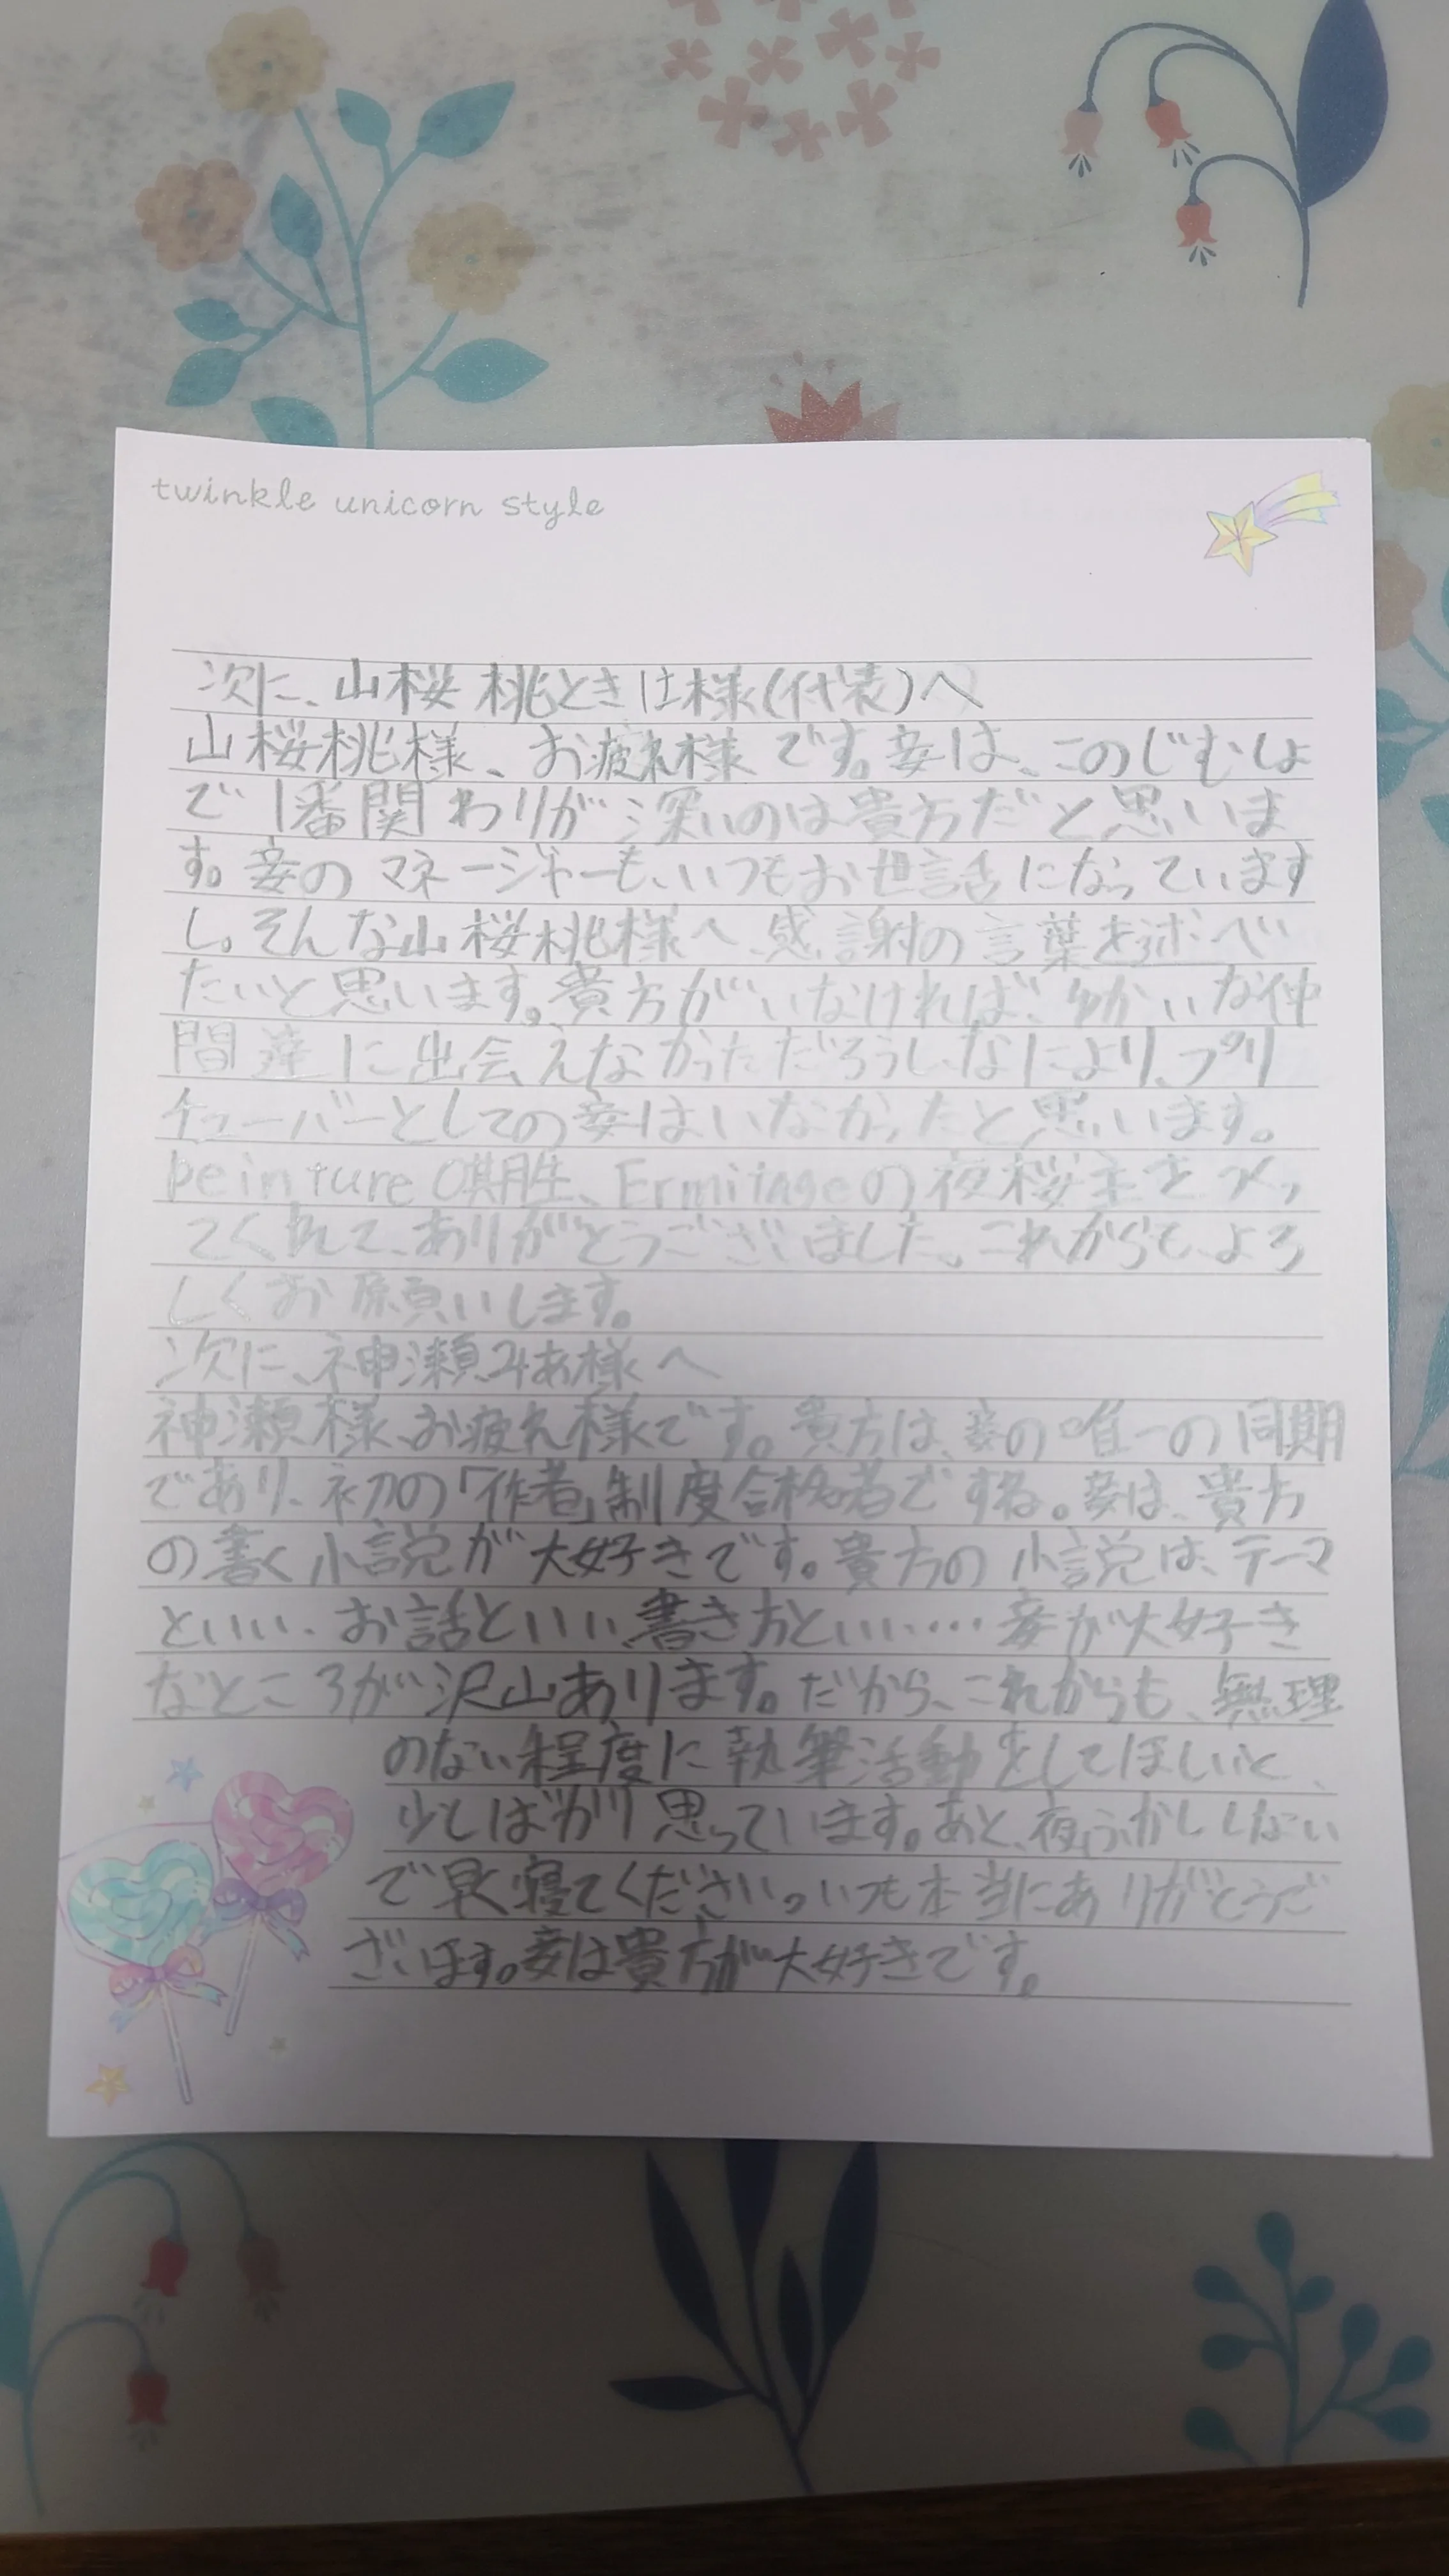 twinkle unicorn style
次に、山桜桃ときは様(代表)へ
山桜桃様、お疲れ様です。妾は、このじむしょ
で1番関わりが深いのは貴方だと思いま
す。妾のマネージャーも、いつもお世話になっています
し。そんな山桜桃様へ、感謝の言葉を述べ
たいと思います。貴方がいなければ、ゆかいな仲
間達に出会えなかっただろうし、なにより、プリ
チューバーとしての妾はいなかったと思います。
peinture 0期生、Ermitageの夜桜を
てくれて、ありがとうございました。これからも、よろ
しくお願いします。
次に、神瀬みあ様へ
神瀬様、お疲れ様です。貴方は、妾の唯一の同期
であり、初の「作者」制度合格者ですね。妾は、貴方
の書く小説が大好きです。貴方の小説は、テーマ
といい、お話といい、書き方といい……妾が大好き
なところが沢山あります。だから、これからも、無理
のない程度に執筆活動をしてほしいと、
少しばかり思っています。あと、夜ふかししない
で早く寝てください。いつも本当にありがとうご
ざいます。妾は貴方が大好きです。